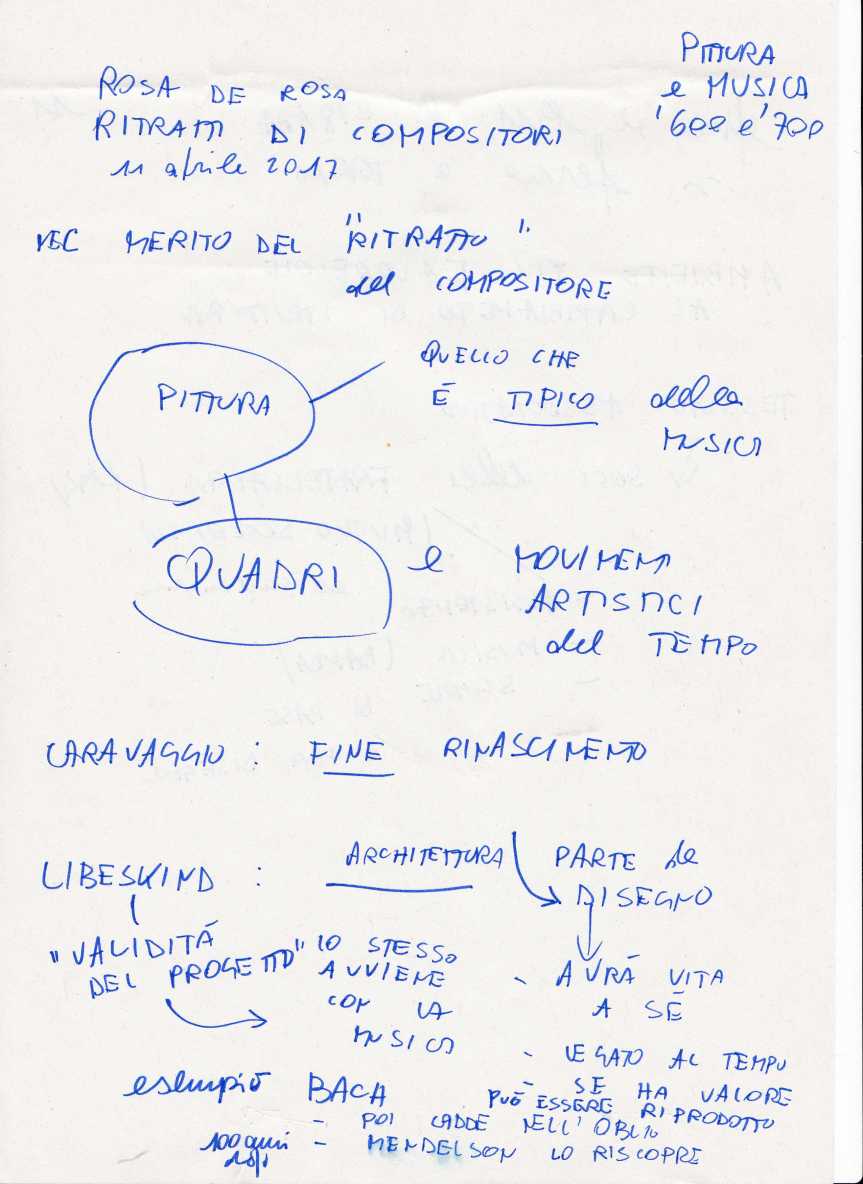 PITTURA
e MUSICA
'600 e '700
ROSA DE ROSA
RITRATTI DI COMPOSITORI
11 aprile 2017
NEL MERITO DEL "RITRATTO"
del COMPOSITORE
PITTURA
QUELLO CHE
È TIPICO della
MUSICA
QUADRI e MOVIMENTI
ARTISTICI
del TEMPO
CARAVAGGIO: FINE RINASCIMENTO
LIBESKIND: ARCHITETTURA
PARTE da
DISEGNO
"VALIDITÀ
DEL PROGETTO"
LO STESSO
AVVIENE
CON LA
MUSICA
- AVRÀ VITA
A SÉ
- LEGATO AL TEMPO
- SE HA VALORE
PUÒ ESSERE RIPRODOTTO
esempio BACA
- POI CADDE NELL'OBLIO
100 anni dopo - MENDELSON LO RISCOPRE